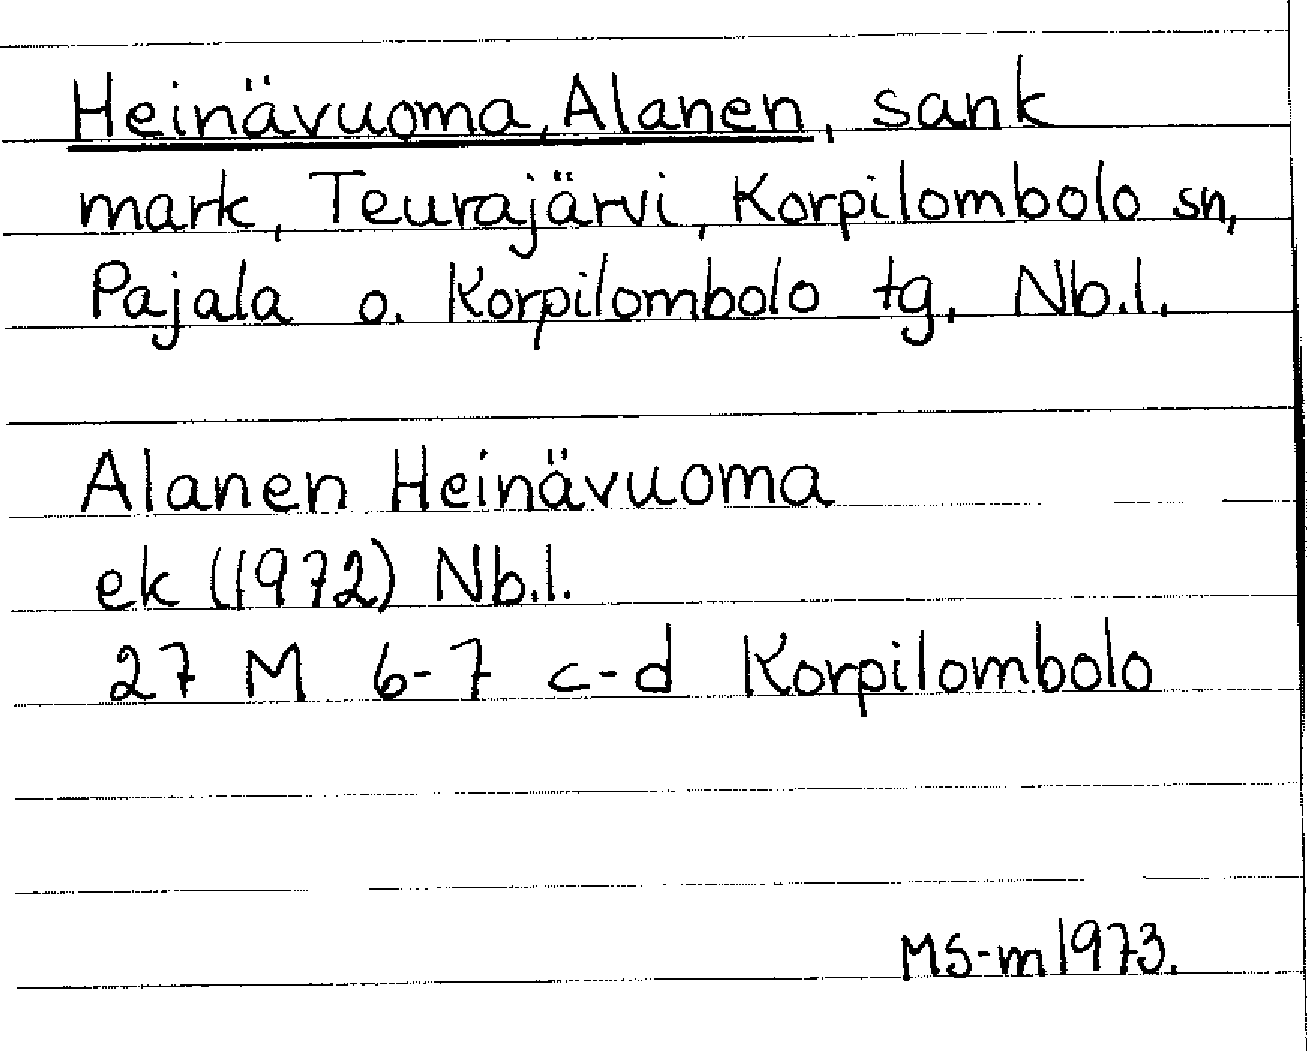 Heinävuoma, Alanen, sank
mark, Teurajärvi, Korpilombolo sn,
Pajala o. Korpilombolo tg, Nb.l.
Alanen Heinävuoma
ek (1972) Nb.l.
27 M 6-7 c-d Korpilombolo
MS-m 1973.